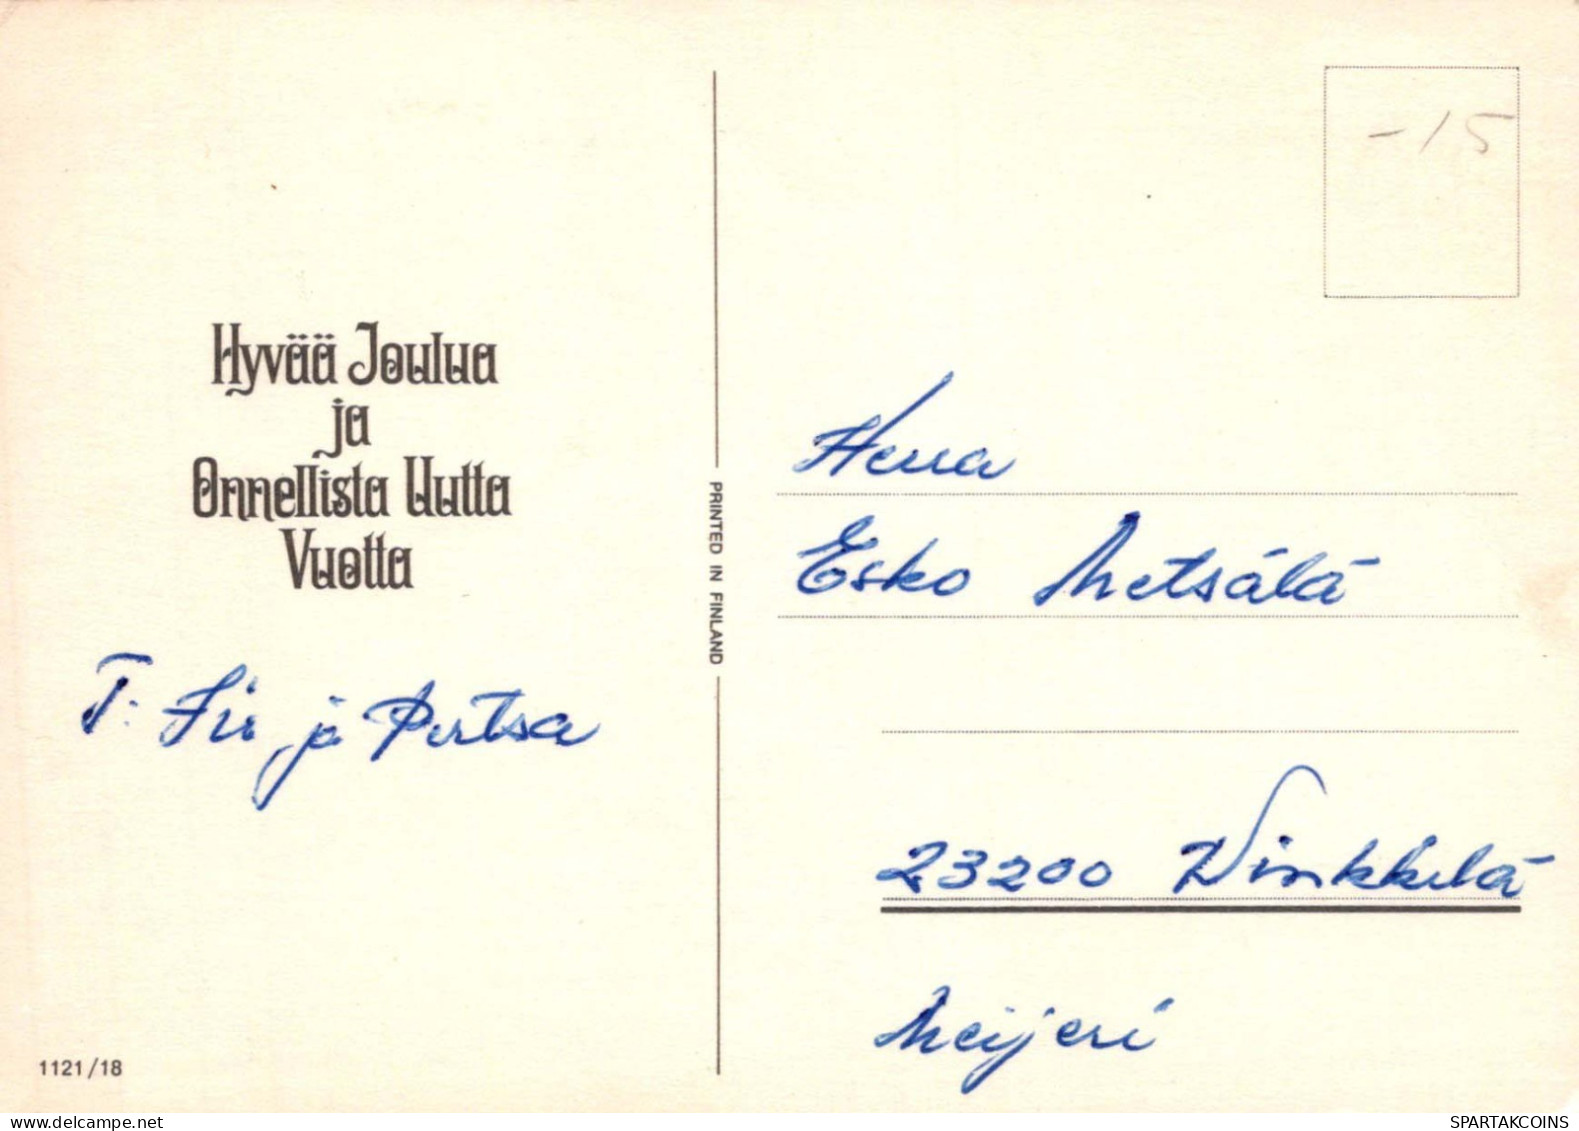 Hyvää Joulua
ja
Onnellista Uutta
Vuotta
T: ja Pertsa
1121/18
PRINTED IN FINLAND
-15
Herra
Esko Metsälä
23200 Vinkkilä
Meijeri
SPARTAKCOINS